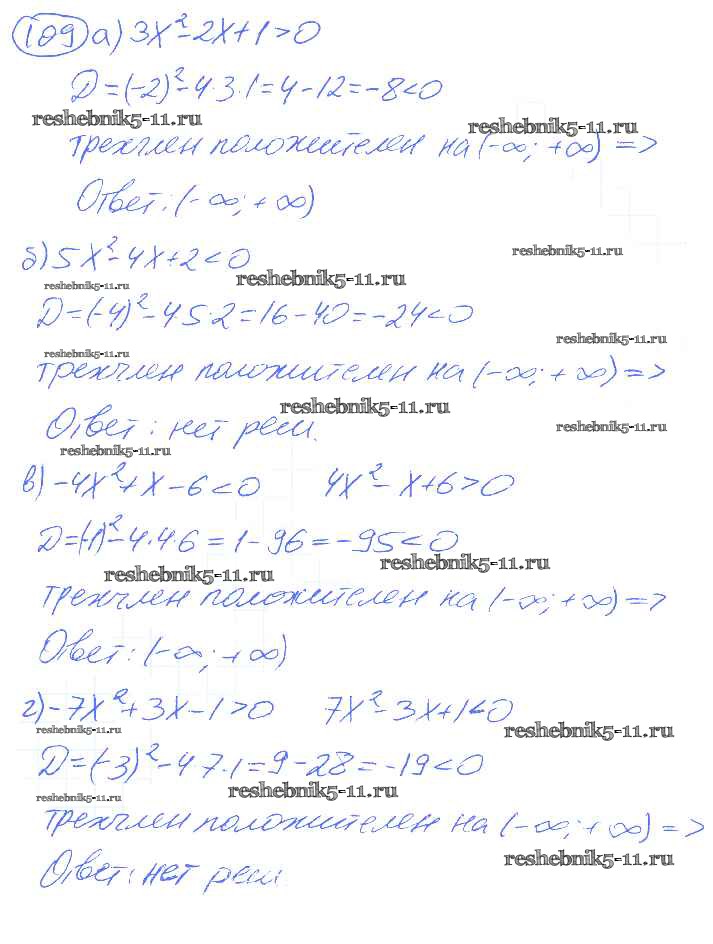 109 а) 3x²-2x+1>0
D=(-2)²-4·3·1=4-12=-8<0
reshebnik5-11.ru
reshebnik5-11.ru
трехчлен положителен на (-∞;+∞) =>
Ответ: (-∞;+∞)
б) 5x²-4x+2<0
reshebnik5-11.ru
reshebnik5-11.ru
reshebnik5-11.ru
D=(-4)²-4·5·2=16-40=-24<0
reshebnik5-11.ru
reshebnik5-11.ru
трехчлен положителен на (-∞;+∞) =>
reshebnik5-11.ru
Ответ: нет реш.
reshebnik5-11.ru
reshebnik5-11.ru
в) -4x²+x-6<0 4x²-x+6>0
D=(-1)²-4·4·6=1-96=-95<0
reshebnik5-11.ru
reshebnik5-11.ru
трехчлен положителен на (-∞;+∞) =>
Ответ: (-∞;+∞)
г) -7x²+3x-1>0 7x²-3x+1<0
reshebnik5-11.ru
reshebnik5-11.ru
D=(-3)²-4·7·1=9-28=-19<0
reshebnik5-11.ru
reshebnik5-11.ru
трехчлен положителен на (-∞;+∞) =>
Ответ: нет реш.
reshebnik5-11.ru